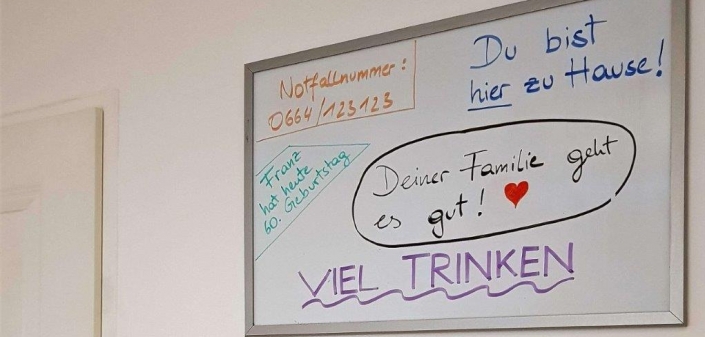 Notfallnummer:
0664/123123
Du bist
hier zu Hause!
Franz
hat heute
60. Geburtstag
Deiner Familie geht
es gut! ♥
VIEL TRINKEN